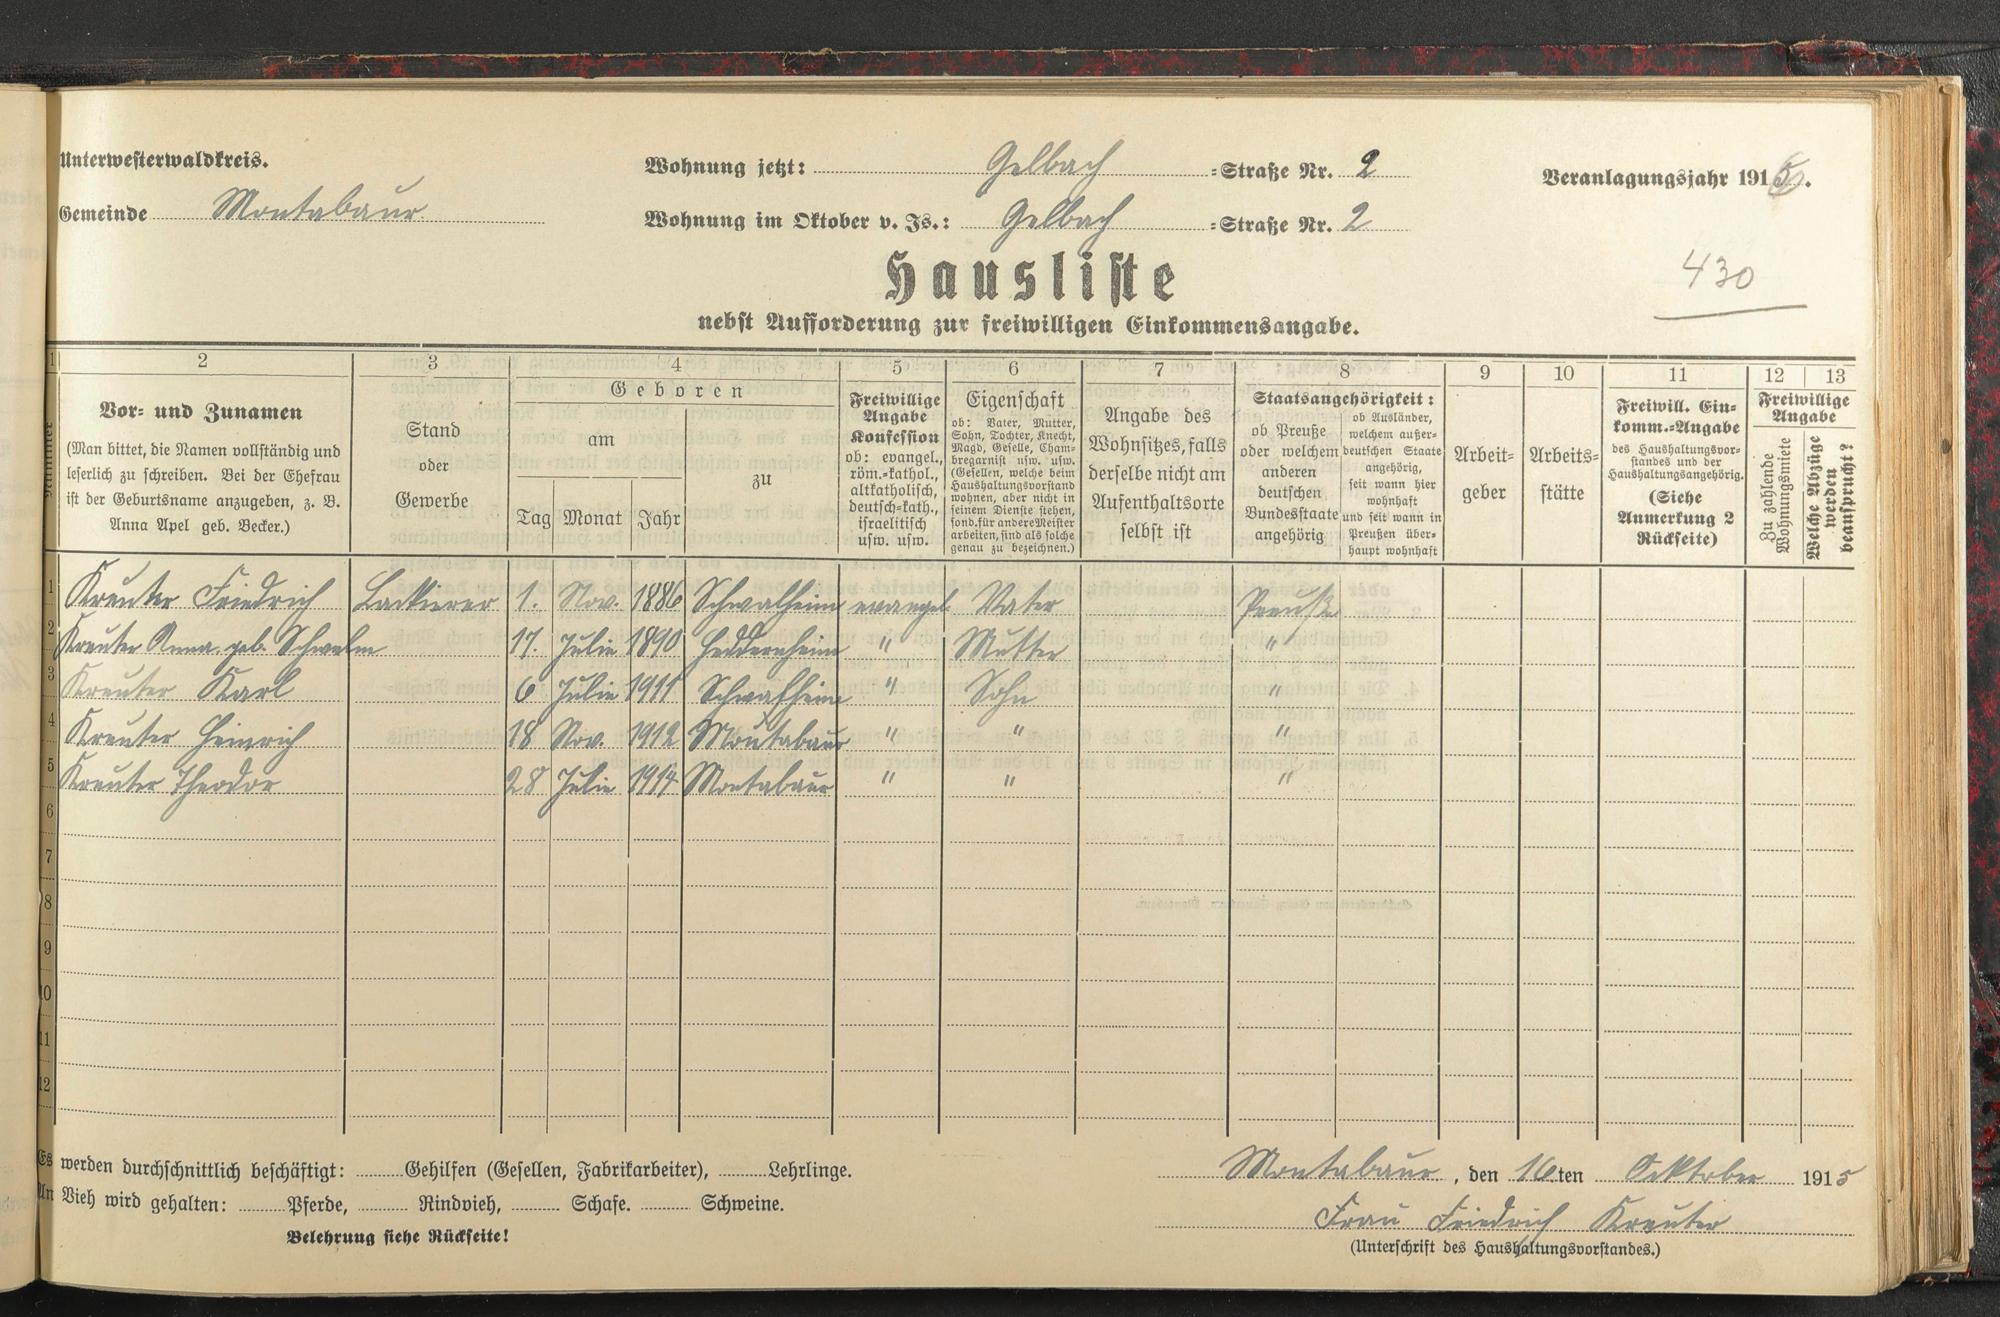 Unterwesterwaldkreis.
Gemeinde Montabaur
Wohnung jetzt: Gelbach =Straße Nr. 2
Wohnung im Oktober v. Js.: Gelbach =Straße Nr. 2
Veranlagungsjahr 1916.
430
Hausliste
nebst Aufforderung zur freiwilligen Einkommensangabe.
1 2 3 4 5 6 7 8 9 10 11 12 13
Nummer
Vor= und Zunamen
(Man bittet, die Namen vollständig und
leserlich zu schreiben. Bei der Ehefrau
ist der Geburtsname anzugeben, z. B.
Anna Apel geb. Becker.)
Stand
oder
Gewerbe
Geboren
am
Tag Monat Jahr
zu
Freiwillige
Angabe
Konfession
ob: evangel.,
röm.=kathol.,
altkatholisch,
deutsch=kath.,
israelitisch
usw. usw.
Eigenschaft
ob: Vater, Mutter,
Sohn, Tochter, Knecht,
Magd, Geselle, Cham=
bregarnist usw. usw.
(Gesellen, welche beim
Haushaltungsvorstand
wohnen, aber nicht in
seinem Dienste stehen,
sond. für andere Meister
arbeiten, sind als solche
genau zu bezeichnen.)
Angabe des
Wohnsitzes, falls
derselbe nicht am
Aufenthaltsorte
selbst ist
Staatsangehörigkeit:
ob Preuße
oder welchem
anderen
deutschen
Bundesstaate
angehörig
ob Ausländer,
welchem außer=
deutschen Staate
angehörig,
seit wann hier
wohnhaft
und seit wann in
Preußen über=
haupt wohnhaft
Arbeit=
geber
Arbeits=
stätte
Freiwill. Ein=
komm.=Angabe
des Haushaltungsvor=
standes und der
Haushaltungsangehörig.
(Siehe
Anmerkung 2
Rückseite)
Freiwillige
Angabe
Zu zahlende
Wohnungsmiete
Welche Abzüge
werden
beansprucht?
1 Kreuter Friedrich Lackierer 1. Nov. 1886 Schwalheim evangel. Vater Preuße
2 Kreuter Anna geb. Schwalm 17. Julie 1890 Heddernheim " Mutter "
3 Kreuter Karl 6 Julie 1911 Schwalheim " Sohn "
4 Kreuter Heinrich 18 Nov. 1912 Montabaur " " "
5 Kreuter Theodor 28 Julie 1914 Montabaur " " "
6
7
8
9
10
11
12
Es werden durchschnittlich beschäftigt: Gehilfen (Gesellen, Fabrikarbeiter), Lehrlinge.
An Vieh wird gehalten: Pferde, Rindvieh, Schafe. Schweine.
Belehrung siehe Rückseite!
Montabaur, den 16ten Ocktober 1915
Frau Friedrich Kreuter
(Unterschrift des Haushaltungsvorstandes.)